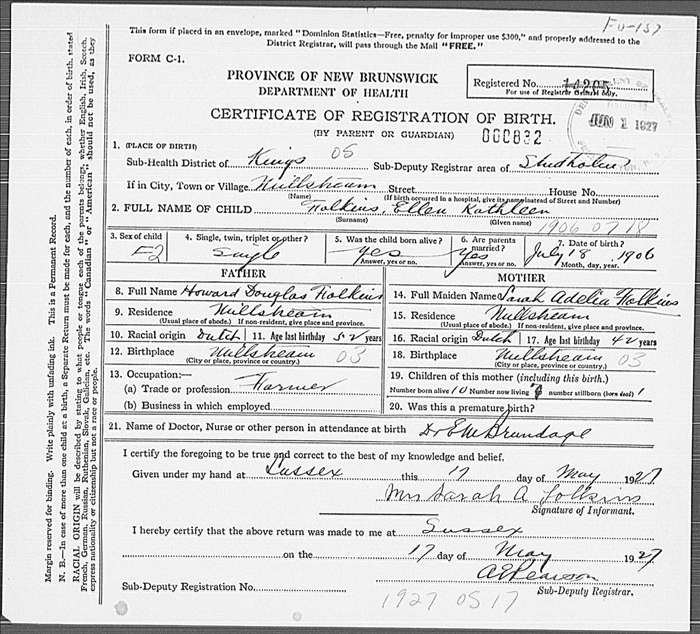 Fu-157
This form if placed in an envelope, marked "Dominion Statistics—Free, penalty for improper use $300," and properly addressed to the
District Registrar, will pass through the Mail "FREE."
FORM C-1.
PROVINCE OF NEW BRUNSWICK
DEPARTMENT OF HEALTH
Registered No. 14205
For use of Registrar General only.
CERTIFICATE OF REGISTRATION OF BIRTH.
(BY PARENT OR GUARDIAN)
000832
JUN 1 1927
1. (PLACE OF BIRTH)
Sub-Health District of Kings 05 Sub-Deputy Registrar area of Studholm
If in City, Town or Village Millstream Street House No.
(Name) (If birth occurred in a hospital, give its name instead of Street and Number)
2. FULL NAME OF CHILD Folkins, Ellen Kathleen
(Surname) (Given name)
1906 07 18
3. Sex of child F2
4. Single, twin, triplet or other? Single
5. Was the child born alive? Yes
Answer, yes or no.
6. Are parents married? Yes
Answer, yes or no.
7. Date of birth? July 18 1906
Month, day, year.
FATHER
8. Full Name Howard Douglas Folkins
9. Residence Millstream
(Usual place of abode.) If non-resident, give place and province.
10. Racial origin Dutch 11. Age last birthday 52 years
12. Birthplace Millstream 03
(City or place, province or country.)
13. Occupation:—
(a) Trade or profession Farmer
(b) Business in which employed
MOTHER
14. Full Maiden Name Sarah Adelia Folkins
15. Residence Millstream
(Usual place of abode.) If non-resident, give place and province.
16. Racial origin Dutch 17. Age last birthday 42 years
18. Birthplace Millstream 03
(City or place, province or country.)
19. Children of this mother (including this birth.)
Number born alive 10 Number now living number stillborn (born dead) 1
20. Was this a premature birth?
21. Name of Doctor, Nurse or other person in attendance at birth Dr E M Brundage
I certify the foregoing to be true and correct to the best of my knowledge and belief.
Given under my hand at Sussex this 17 day of May 1927
Mrs Sarah A Folkins
Signature of Informant.
I hereby certify that the above return was made to me at Sussex
on the 17 day of May 1927
A E Pearson
Sub-Deputy Registration No. Sub-Deputy Registrar.
1927 05 17
Margin reserved for binding. Write plainly with unfading ink. This is a Permanent Record.
N. B.—In case of more than one child at a birth, a Separate Return must be made for each, and the number of each, in order of birth, stated
RACIAL ORIGIN will be described by stating to what people or tongue each of the parents belongs, whether English, Irish, Scotch,
French, German, Russian, Ruthenian, Slovak, Galician, etc. The words "Canadian" or "American" should not be used, as they
express nationality or citizenship but not a race or people.